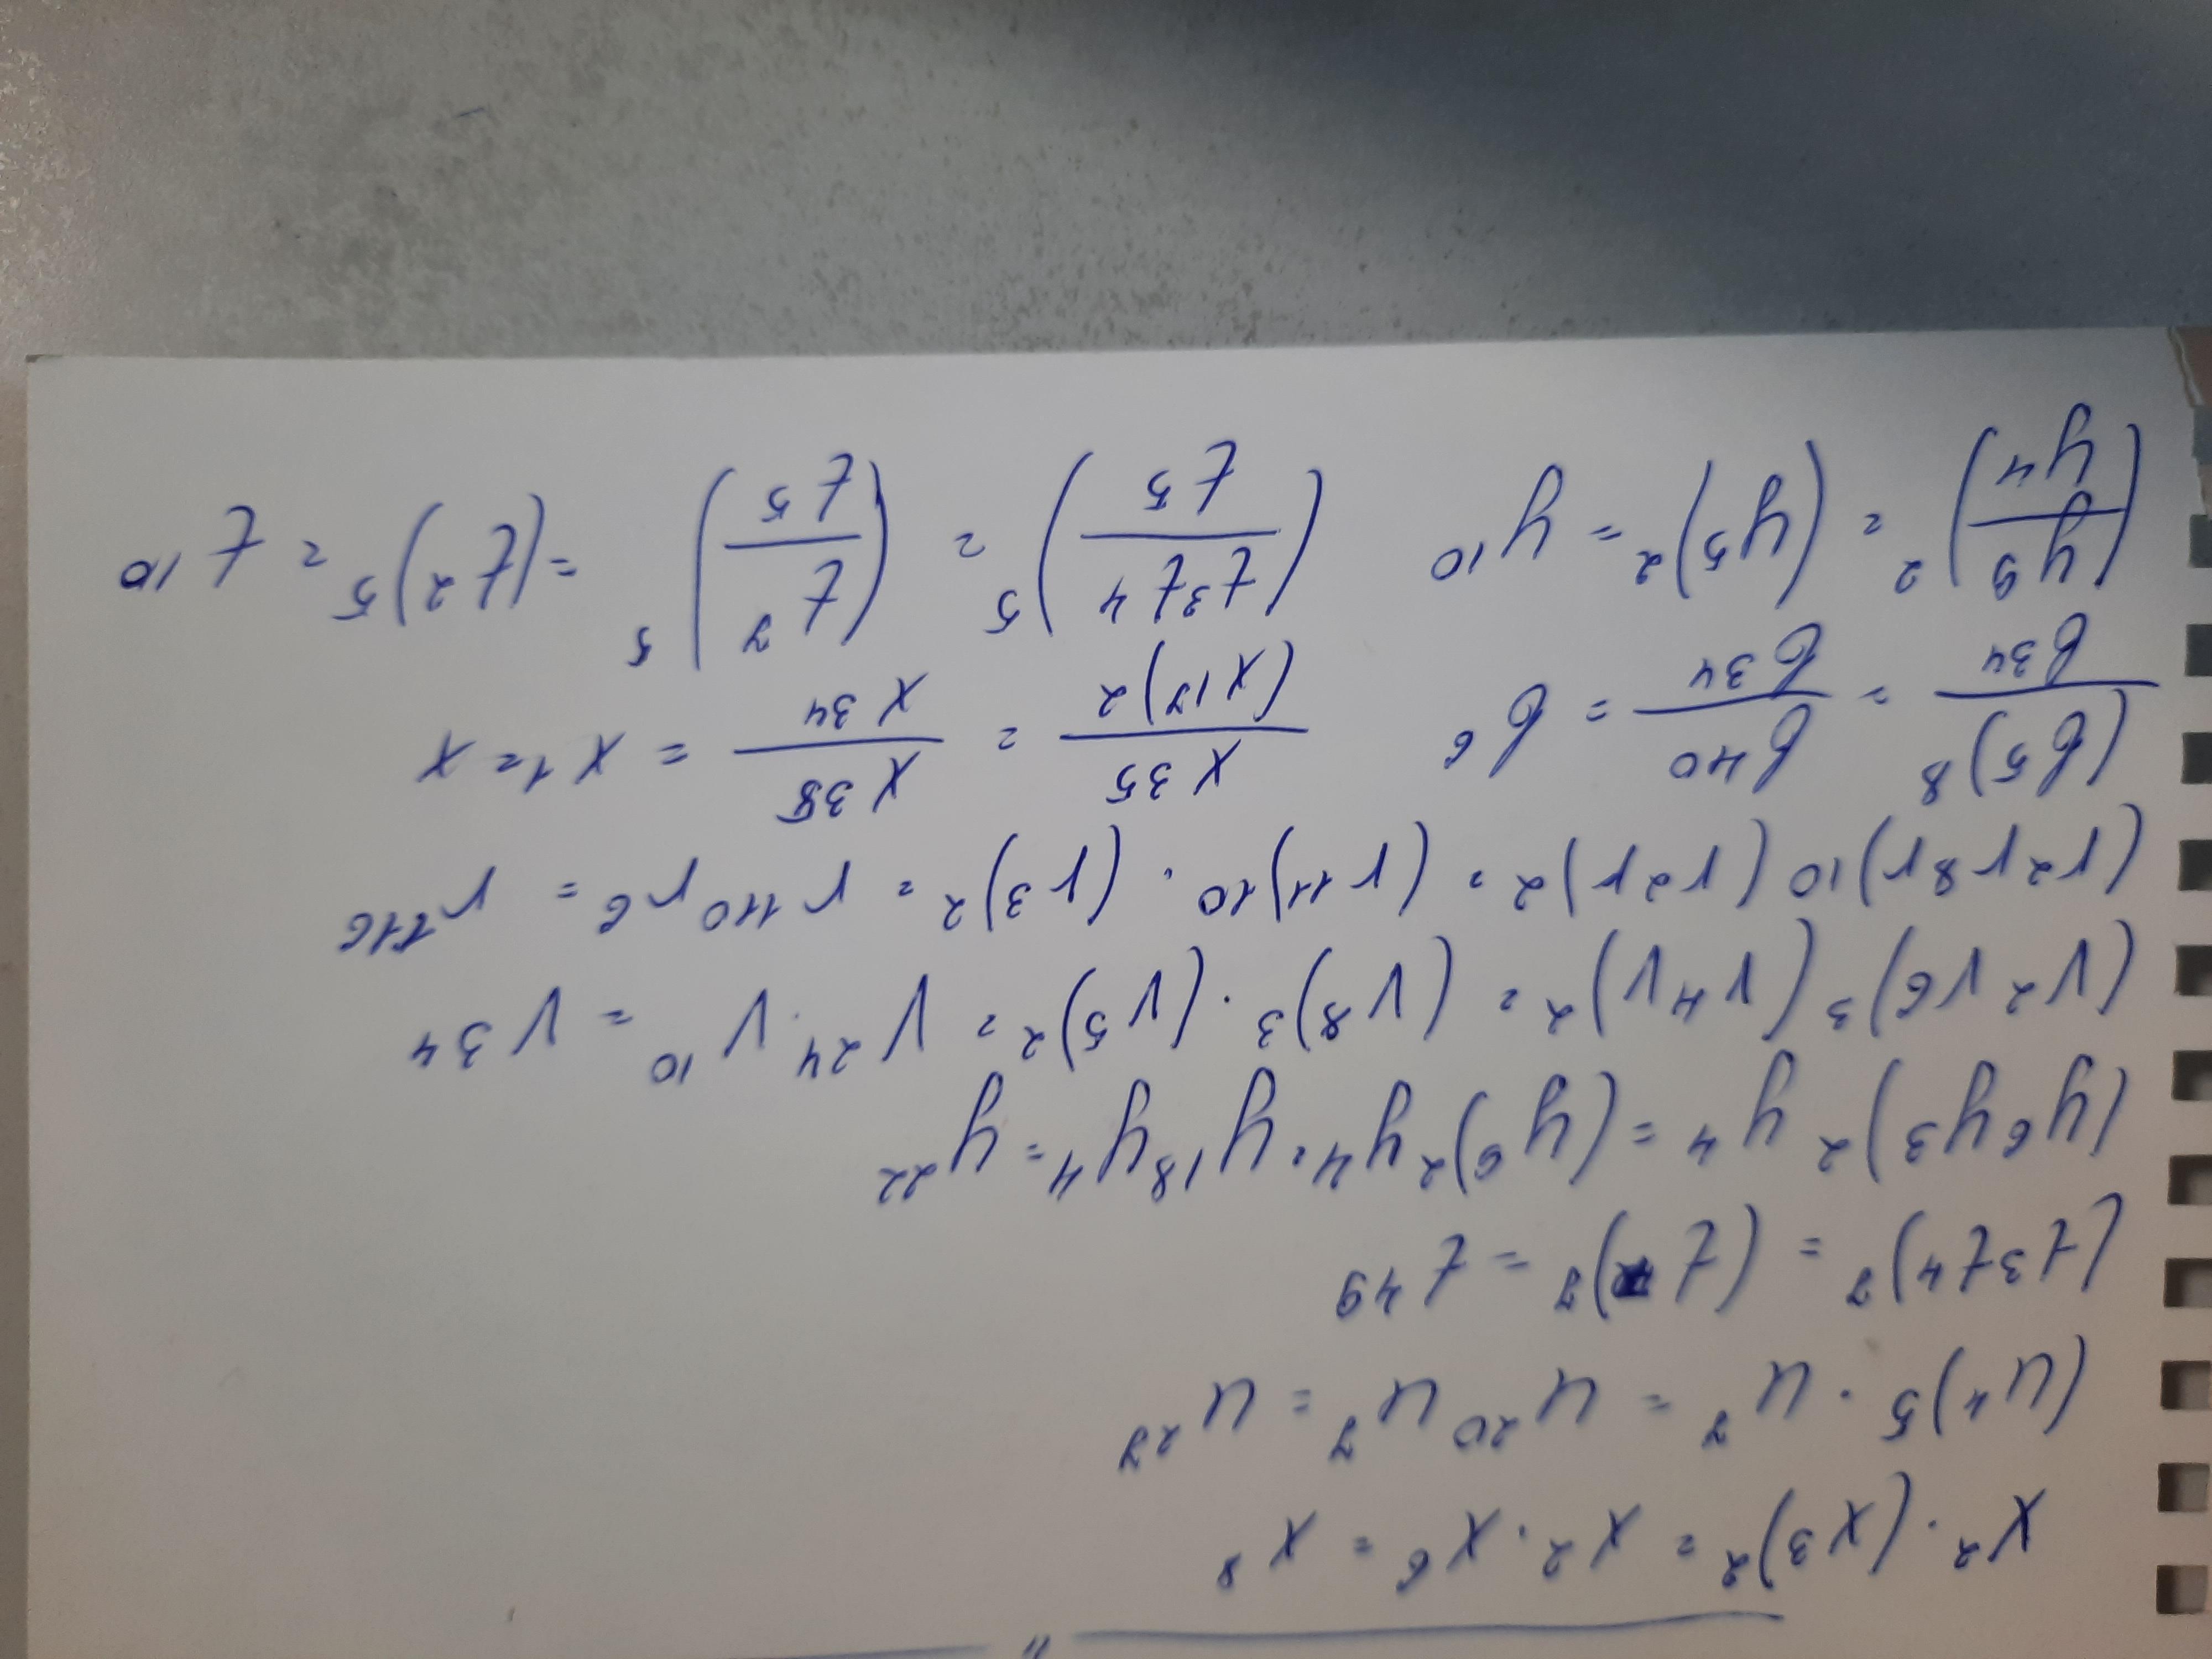 x² · (x³)² = x² · x⁶ = x⁸
(u⁴)⁵ · u⁷ = u²⁰ u⁷ = u²⁷
(t³t⁴)⁷ = (t⁷)⁷ = t⁴⁹
(y⁶y³)² y⁴ = (y⁹)² y⁴ = y¹⁸y⁴ = y²²
(v²v⁶)³ (v⁴v)² = (v⁸)³ · (v⁵)² = v²⁴ · v¹⁰ = v³⁴
(r²r⁸r)¹⁰ (r²r)² = (r¹¹)¹⁰ · (r³)² = r¹¹⁰r⁶ = r¹¹⁶
(b⁵)⁸/b³⁴ = b⁴⁰/b³⁴ = b⁶ x³⁵/(x¹⁷)² = x³⁵/x³⁴ = x¹ = x
(y⁹/y⁴)² = (y⁵)² = y¹⁰ (t³t⁴/t⁵)⁵ = (t⁷/t⁵)⁵ = (t²)⁵ = t¹⁰